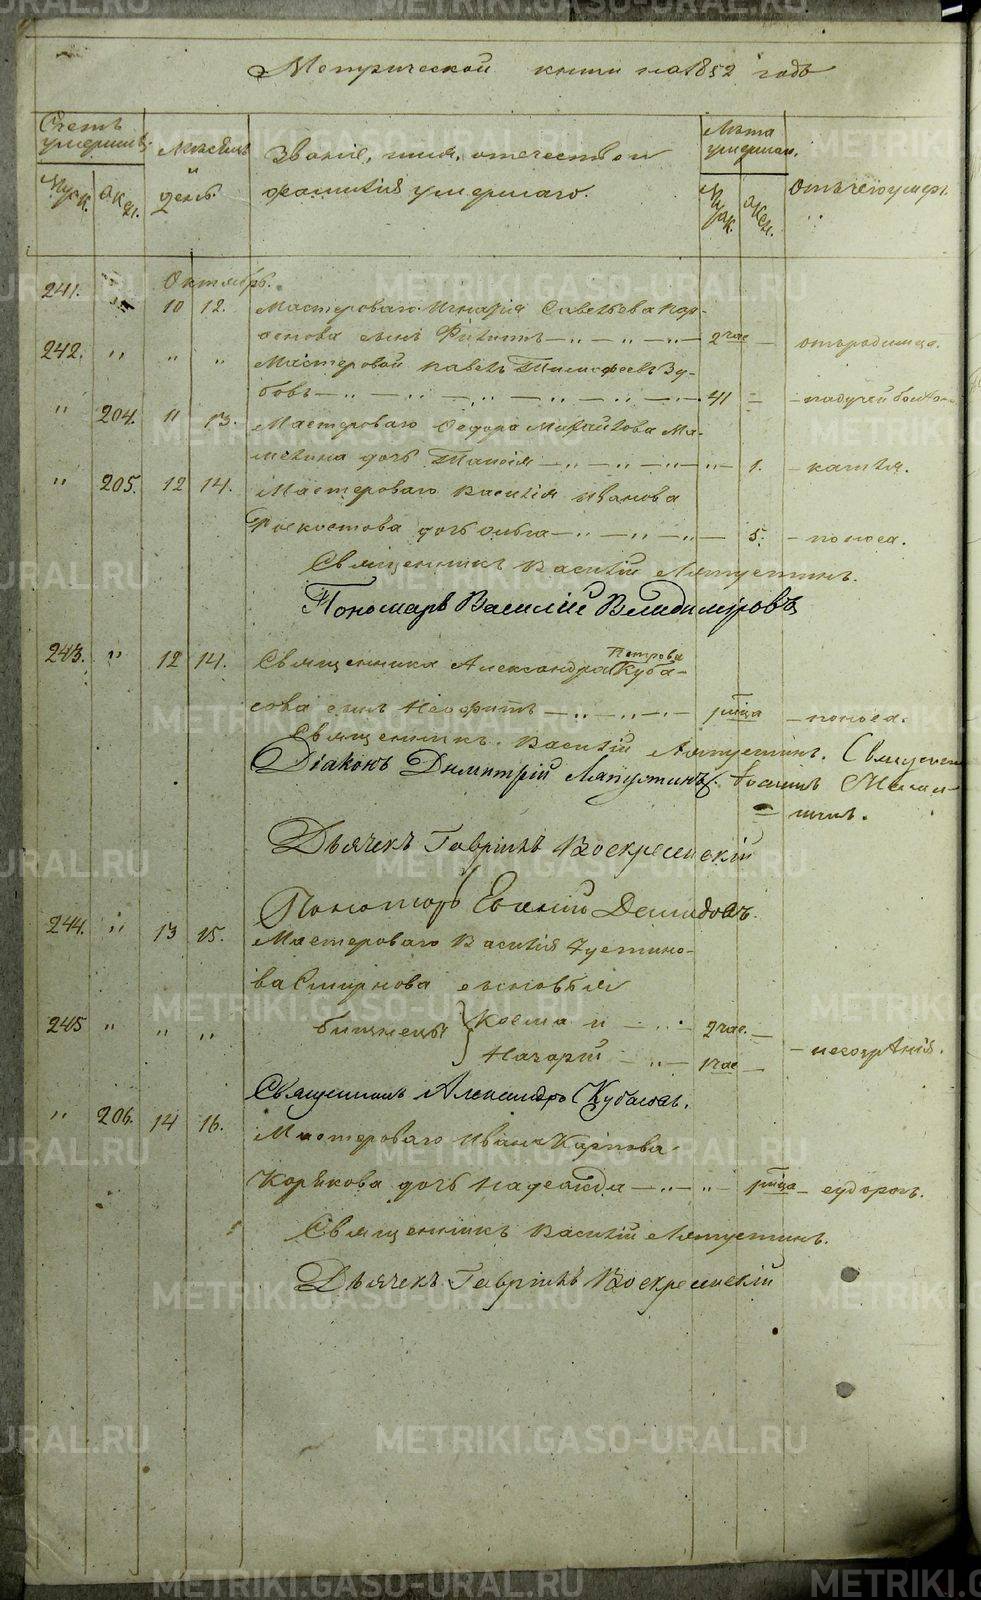 Метрической книги на 1852 годъ
Счетъ умершихъ.
Мѣсяцъ и день.
Званіе, имя, отечество и
фамилія умершаго.
Лѣта умершаго.
Отъ чего умеръ.
Муж.
Жен.
Муж.
Жен.
Октябрь.
241. " 10 12. Мастероваго Игнатія Савельева
сынъ Филиппъ — " — " — " — 2 час — отъ родимца.
242. " " " Мастеровой Павелъ Тимофеевъ Зу-
бовъ — " — " — " — " — " — 41 — падучей
" 204. 11 13. Мастероваго Федора Михайлова Ма-
дочь Таисія — " — " — " — " 1. — кашля.
" 205. 12 14. Мастероваго Василія Иванова
дочь Ольга — " — " — " — 5. — поноса.
Священникъ Василій Ляпустинъ.
Пономарь Василій Владиміровъ
243. " 12 14. Священника Александра Петрова Куба-
сова сынъ Неофитъ — " — " — " — 1 мѣсца — поноса.
Священникъ Василій Ляпустинъ. Священ
Діаконъ Димитрій Ляпустинъ. Іоаннъ
Дьячекъ Гавріилъ Воскресенскій
Пономарь Евгеній Демидовъ.
244. " 13 15. Мастероваго Василія Густино-
ва Смирнова сыновья
245 " " " близнецы Косма и — " — 2 час. —
Назарій — " — 1 час — — несозрѣнія.
Священникъ Александръ Кубасовъ.
" 206. 14 16. Мастероваго Ивана Карпова
Корякова дочь Надежда — " — " — 1 мѣсца — судорогъ.
Священникъ Василій Ляпустинъ.
Дьячекъ Гавріилъ Воскресенскій
METRIKI.GASO-URAL.RU